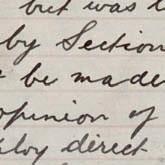 but was
by Section
be made
opinion of
direct